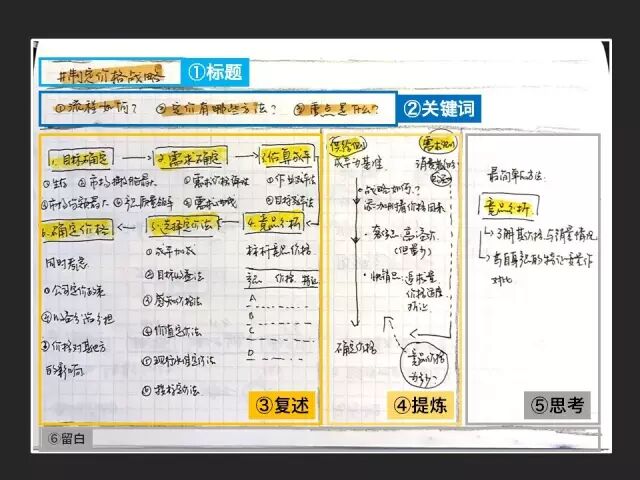 #制定价格战略
①标题
①流程如何？ ②定价有哪些方法？ ③重点是什么？
②关键词
1.目标确定 2.需求确定 3.估算成本
①生存 ②市场撇脂最大 ①需求价格弹性 ①作业成本法
③市场份额最大 ④产品质量领先 ②需求曲线 ②目标成本法
6.确定价格 5.选择定价法 4.竞品分析
同时考虑
①公司定价政策
②收益分派分担
③价格对其他方
的影响
①成本加成
②目标收益法
③感知价格法
④价值定价法
⑤现行水平定价法
⑥拍卖定价法
标杆竞品价格
产品 价格 特征
A
B
C
D
③复述
供给侧 需求侧
成本为基准
战略如何？
添加期待价格因素
奢侈品：高溢价
（但量少）
快销品：追求量
价格适度
确定价格
竞品价格
为多少？
④提炼
最简单的方法
竞品分析
了解其价格与销量情况
与自身产品的特征、定量作
对比
⑤思考
⑥留白